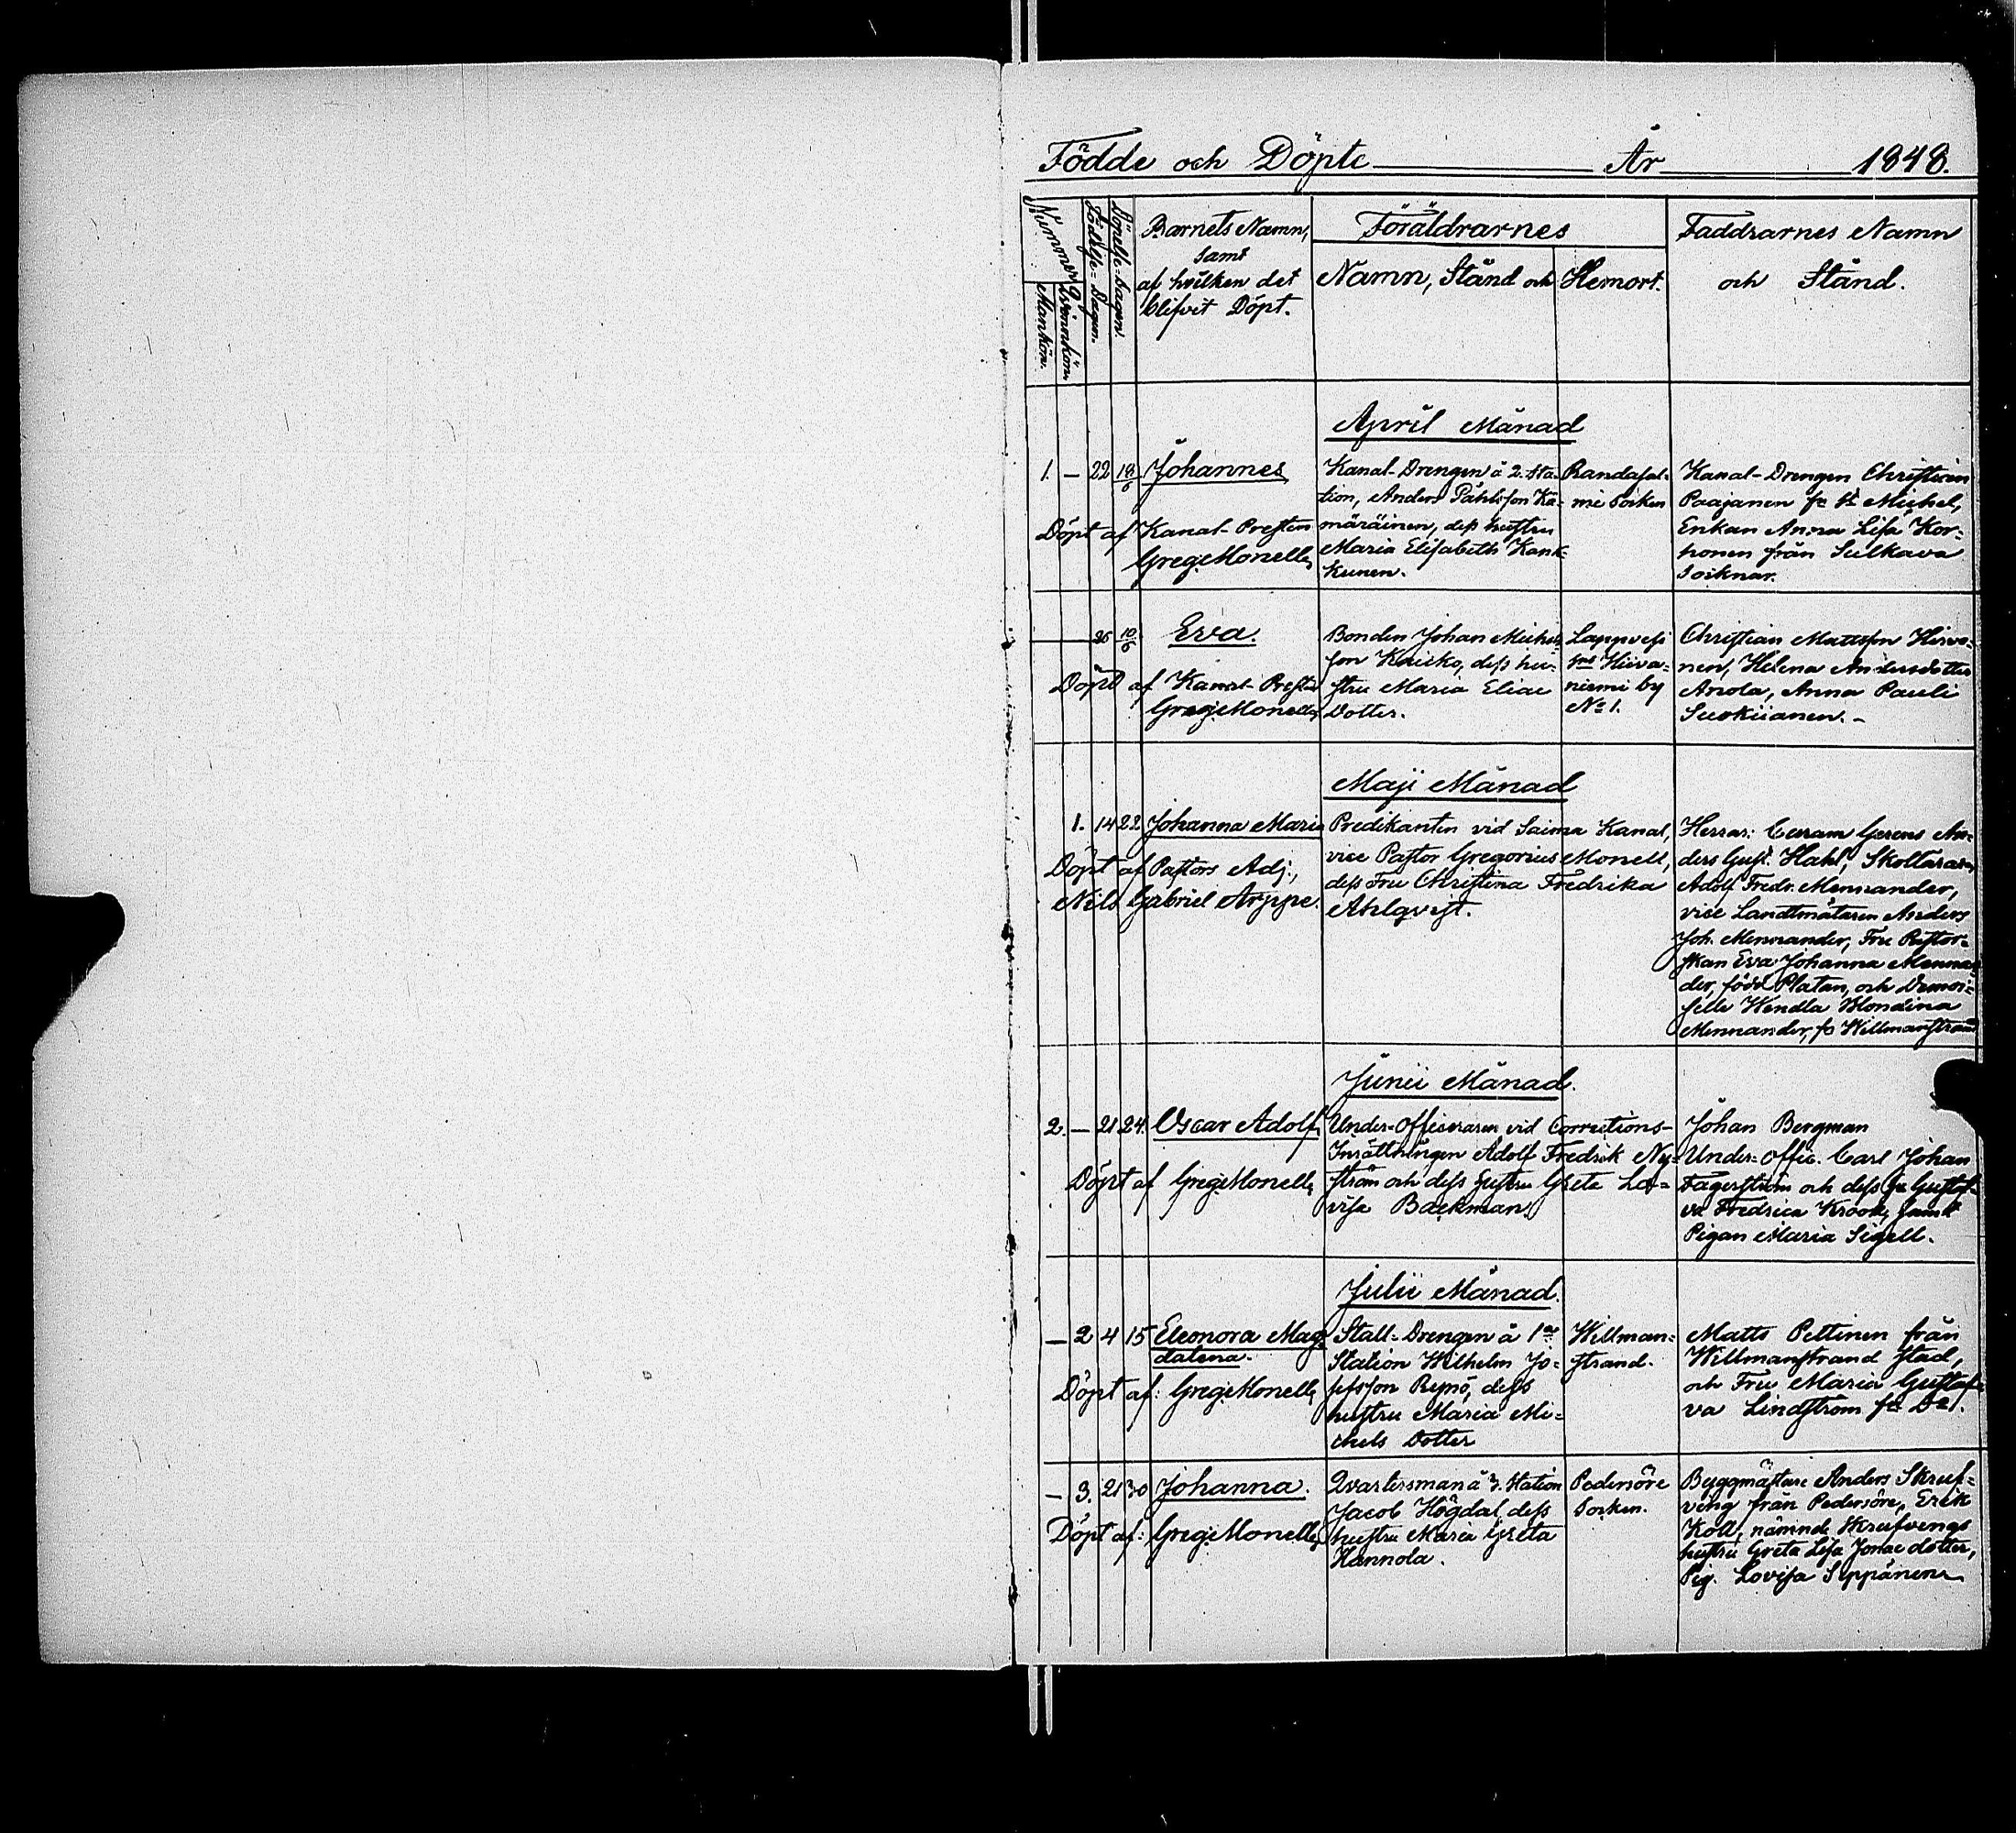 Födde och Döpte År 1848.
Nummer
Mankön.
Qvinnkön.
Födelse-Dagen.
Döpelse-dagen.
Barnets Namn,
samt
af hvilken det
blifvit Döpt.
Föräldrarnes
Namn, Stånd och Hemort.
Faddrarnes Namn
och Stånd.
April Månad
1. — 22 18/6 Johannes
Döpt af Kanal-Presten
Greg. Monell
Kanal-Drengen å 2. Sta-
tion, Anders Påhlsson Kä-
märäinen, dess hustru
Maria Elisabeth Kank-
kunen.
Randasal-
mi Socken
Kanal-Drengen Christian
Paajanen fr. St. Michel,
Enkan Anna Lisa Kor-
honen från Sulkava
Socknar.
26 10/6 Eva.
Döpt af Kanal-Presten
Greg. Monell
Bonden Johan Michels-
son Kaicko, dess hu-
stru Maria Eliae
Dotter.
Lappvesi
Hiiva-
niemi by
No 1.
Christian Mattsson Hirvo-
nen, Helena Andersdotter
Anola, Anna Pauli
Suokiianen. -
Maji Månad
1. 14 22. Johanna Maria
Döpt af Pastors Adj.,
Nils Gabriel Arppe.
Predikanten vid Saima Kanal,
vice Pastor Gregorius Monell,
dess Fru Christina Fredrika
Ahlqvist.
Herrar: Curam Gerens An-
ders Gust. Hahl, Skollärarn
Adolf Fredr. Mennander,
vice Landtmätaren Anders
Joh. Mennander, Fru Pastor-
skan Eva Johanna Mennan-
der, född Platan, och Demoi-
selle Wendla Blondina
Mennander, fr. Willmanstrand
Junii Månad.
2. — 21 24. Oscar Adolf
Döpt af Greg. Monell
Under-Officeraren vid Corrections-
Inrättningen Adolf Fredrik Ny-
ström och dess hustru Greta Lo-
visa Backman
Johan Bergman
Under-Offic. Carl Johan
Fagerström och dess fru Gustaf-
va Fredrica Krook, samt
Pigan Maria Sigell.
Julii Månad.
— 2 4 15 Eleonora Mag-
dalena.
Döpt af: Greg. Monell
Stall-Drengen å 1a
Station Wilhelm Jo-
sefsson Repo, dess
hustru Maria Mi-
chels Dotter
Willman-
strand.
Matts Pettinen från
Willmanstrand stad,
och Fru Maria Gustaf-
va Lindström fr. Do.
— 3. 21 30 Johanna.
Döpt af: Greg. Monell
Qvartersman å 3. Station
Jacob Högdal, dess
hustru Maria Greta
Hannola.
Pedersöre
Socken.
Byggmästare Anders Skruf-
ving från Pedersöre, Erik
Koll, nämnde Skrufvings
hustru Greta Lisa Jonae dotter,
Pig. Lovisa Seppänen